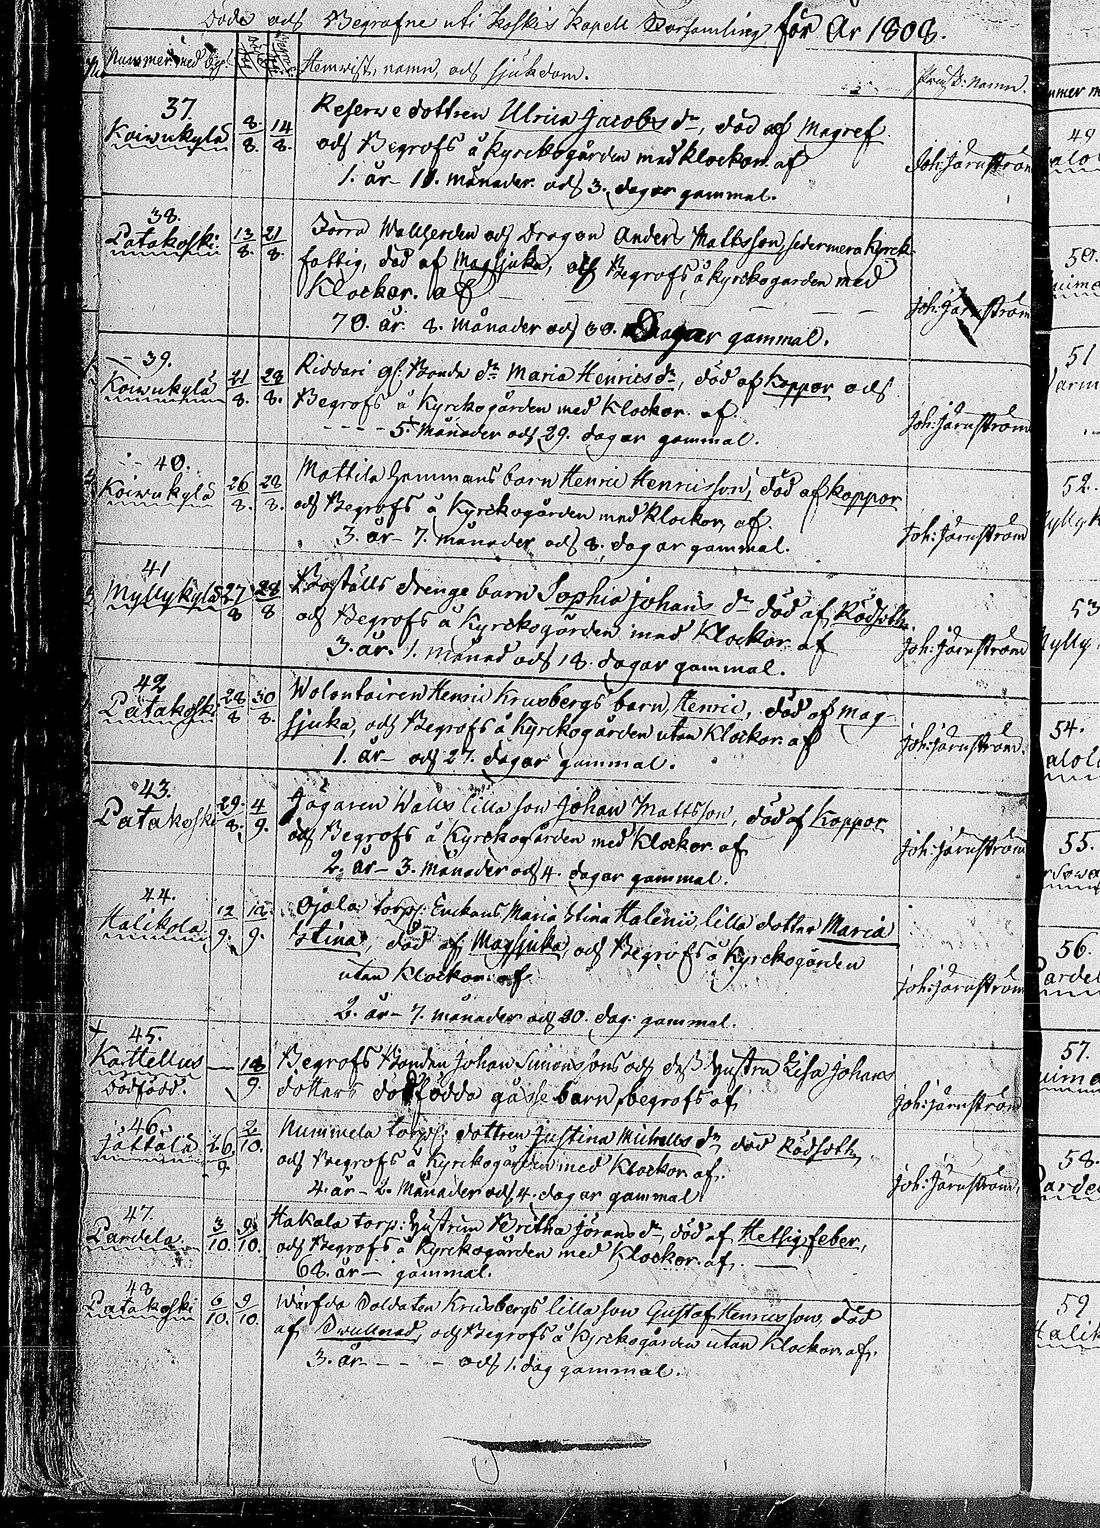 Döde och Begrafne uti Koskis Kapell Församling för År 1808.
Nummer med Byn. Hemwist, namn, och sjukdom. Präst: Namn.
37.
Koiwukylä 8/8. 14/8. Reserve dottren Ulrica Jacobs dr, död af Magref
och Begrofs å Kyrckogården med Klockor. af
1. år – 11. månader och 3. dagar gammal.
Joh: Järnström
38.
Patakoski. 13/8. 21/8. Förra Dragon Anders Mattsson, sedermera Kyrck-
fattig, död af Magsjuka, och Begrofs å Kyrckogården med
Klockor. af
70. år. 8. Månader och 30. Dagar gammal.
Joh: Järnström
39.
Koiwukylä 21/8. 28/8. Riddari gl: Bonde dr Maria Henrics dr, död af Koppor och
Begrofs å Kyrckogården med Klockor. af
5. Månader och 29. dagar gammal.
Joh: Järnström
40.
Koiwukylä 26/8. 28/8. Mattila barn Henric Henricsson, död af Koppor
och Begrofs å Kyrckogården med Klockor, af
3. år – 7. månader och 8. dagar gammal.
Joh: Järnström
41
Myllykylä 27/8 28/8 Boställs drenge barn Sophia Johans dr död af Rödsoth.
och Begrofs å Kyrckogården med Klockor. af
3. år. 1. månad och 18. dagar gammal.
Joh: Järnström
42
Patakoski 28/8 30/8. Wolontairen Henric Krusbergs barn, Henric, död af Mag-
sjuka, och Begrofs å Kyrckogården utan Klockor. af
1. år – och 27. dagar gammal.
Joh: Järnström.
43.
Patakoski 29./8. 4/9. Jägaren Walls lilla son Johan Mattsson, död af Koppor
och Begrofs å Kyrckogården med Klockor. af
2. år – 3. Månader och 4. dagar gammal.
Joh: Järnström
44.
Halikola 12/9. 18./9. Ojala torp: Enckans Maria Stina lilla dotter Maria
Stina, död af Magsjuka, och Begrofs å Kyrckogården
utan Klockor. af
2. år – 7. månader och 20. dag: gammal.
Joh: Järnström
45.
Kattellus — 18/9. Begrofs Bonden Johan Simonssons och dess Hustru Lisa Johans
dödfödd. dotters dödfödda gåsse barn, begrofs af
Joh: Järnström
46.
Tåttala 26/9. 2/10. Nummela torp: dottren Justina Michells dr, död Rödsoth,
och Begrofs å Kyrckogården med Klockor. af.
4. år – 2. Månader och 4. dagar gammal.
Joh: Järnström,
47.
Pardela. 3/10. 9/10. Hakala torp: Hustrun Britha Jörans dr, död af Hettig feber,
och Begrofs å Kyrckogården med Klockor. af.
68. år – gammal.
48
Patakoski 6/10. 9/10. Warfda Soldaten Krusbergs lilla son Gustaf Henricsson, död
af och Begrofs å Kyrckogården utan Klockor. af.
3. år – – – och 1. dag gammal.
49
50.
51
52.
53
54.
55.
56.
57.
58.
59